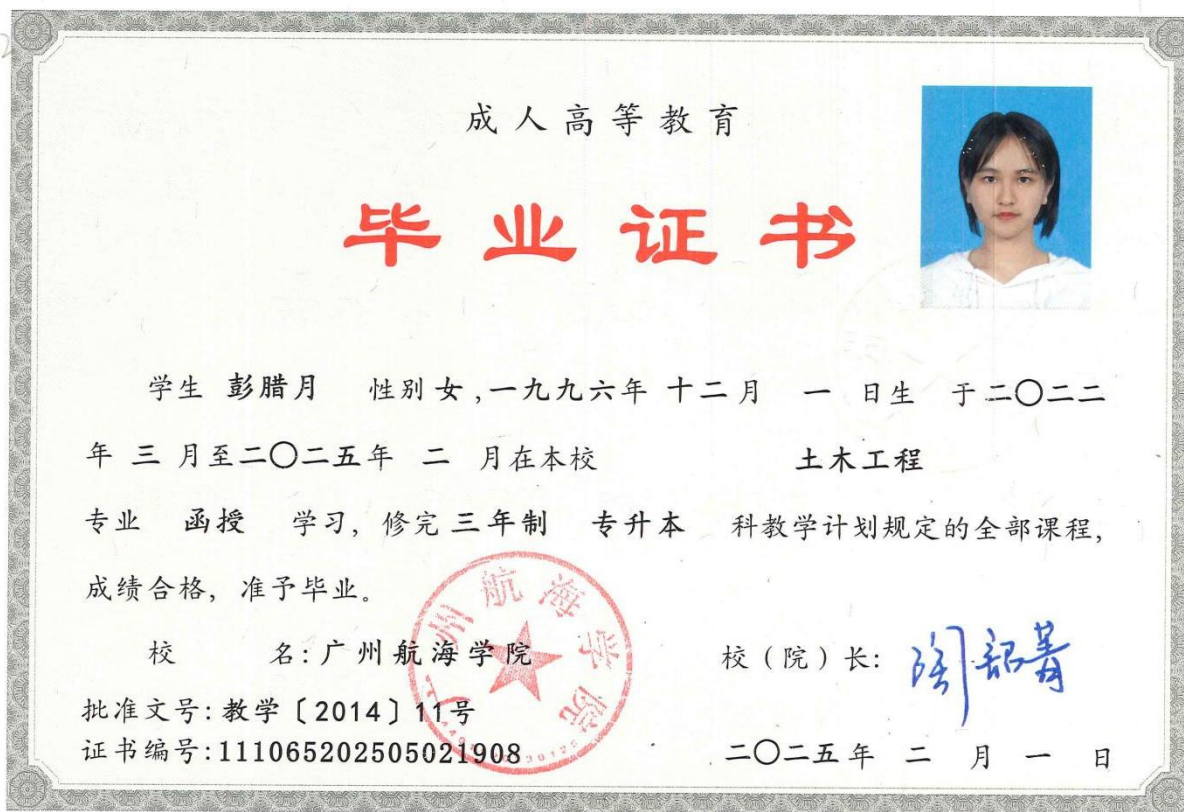 成人高等教育
毕业证书
学生 彭腊月 性别 女 ,一九九六年 十二月 一 日生 于二〇二二
年 三 月至二〇二五年 二 月在本校 土木工程
专业 函授 学习, 修完 三年制 专升本 科教学计划规定的全部课程,
成绩合格, 准予毕业。
校 名: 广州航海学院
校(院)长:
批准文号: 教学〔2014〕11号
证书编号:111065202505021908
二〇二五年 二 月 一 日
广州航海学院